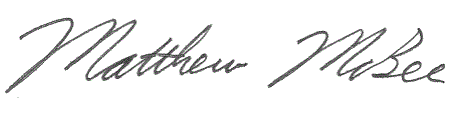 Matthew McBee